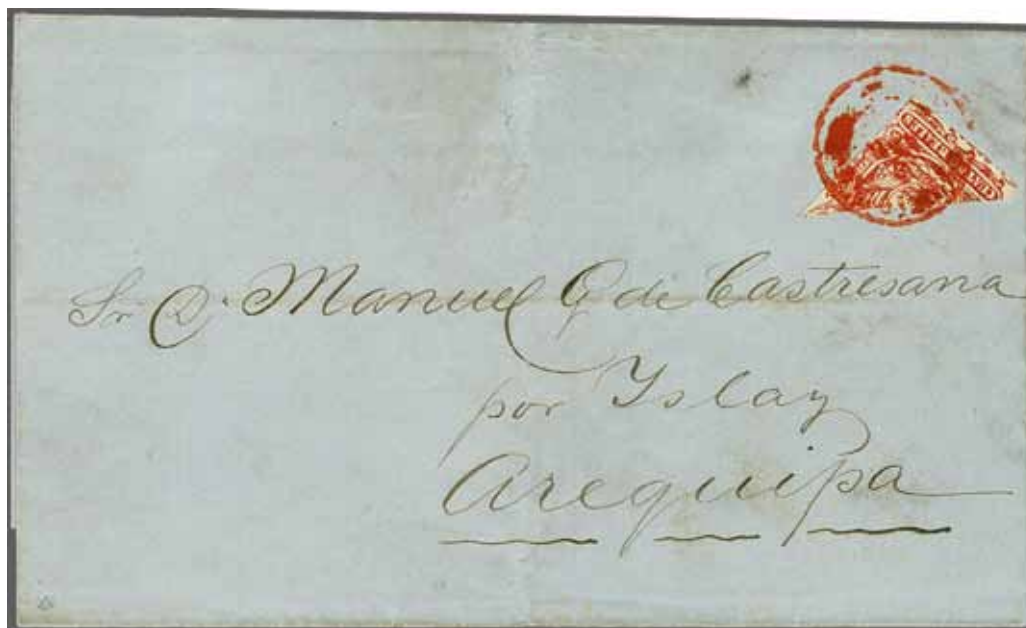 Sr. D. Manuel G. de Castresana
por Yslay
Arequipa